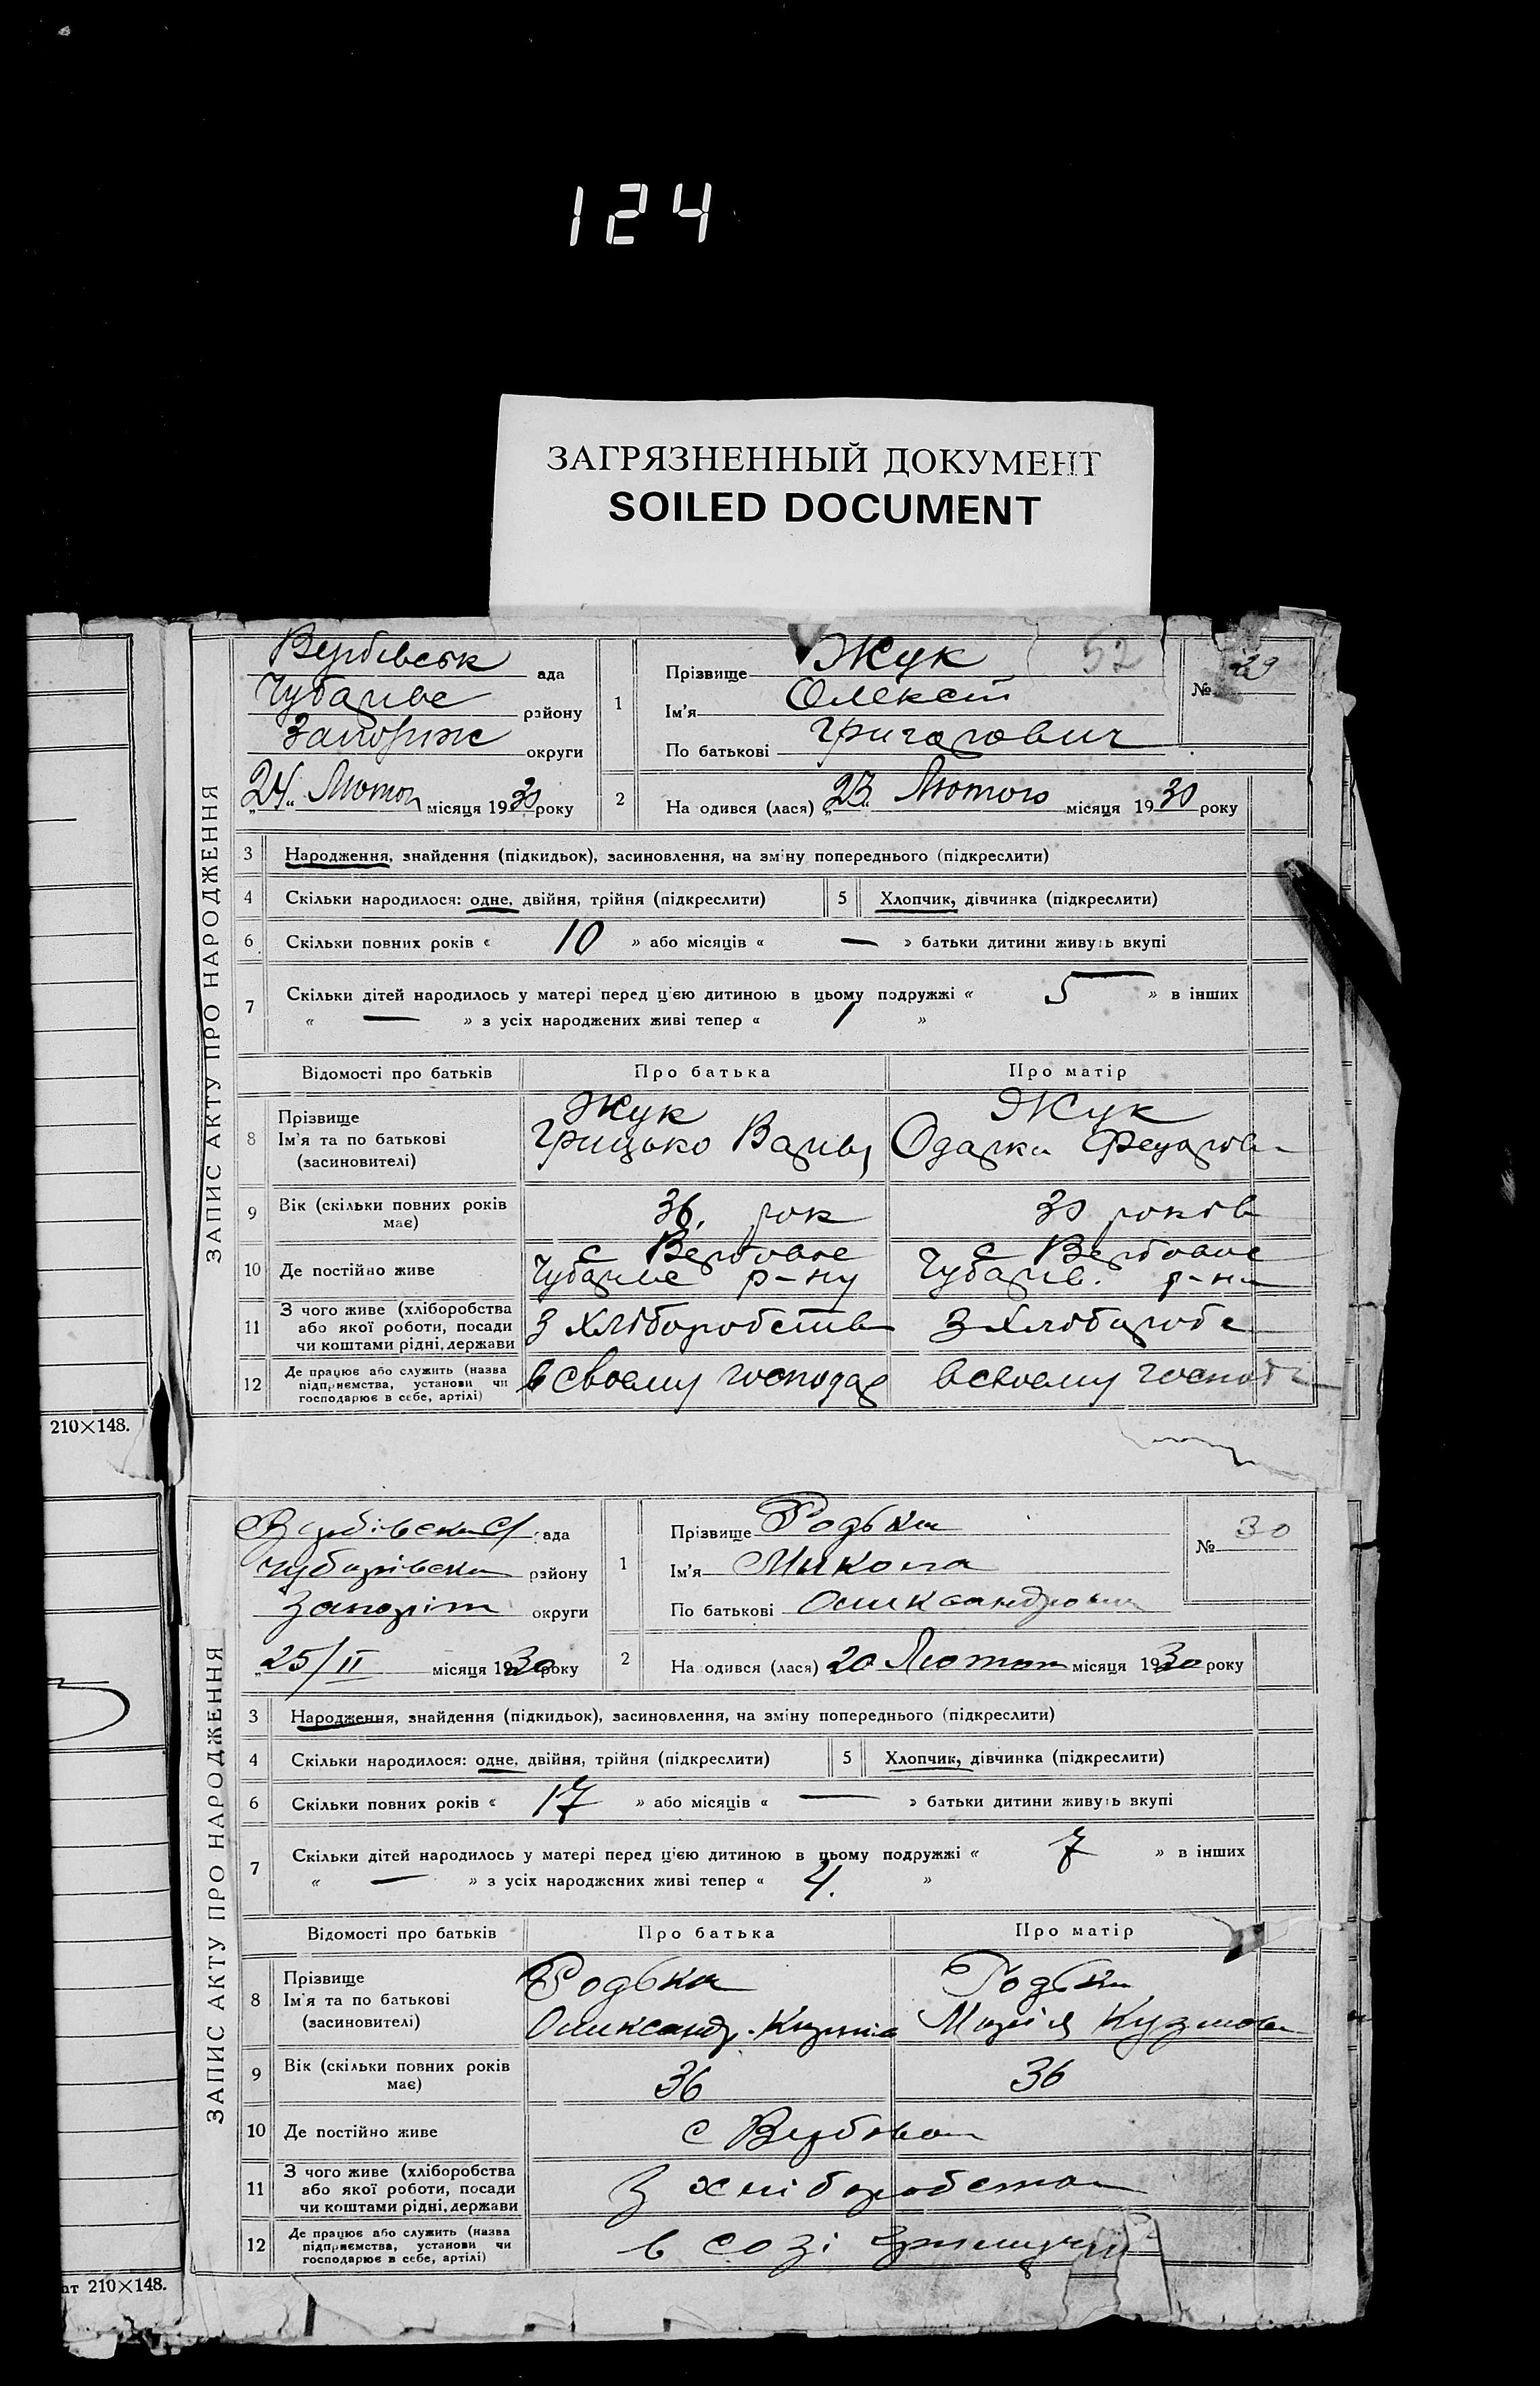 124
ЗАГРЯЗНЕННЫЙ ДОКУМЕНТ
SOILED DOCUMENT
ЗАПИС АКТУ ПРО НАРОДЖЕННЯ
Вербівськ ада
Чубарівс району
Запоріж округи
„24“ Лютого місяця 1930 року
1 Прізвище Жук 52
Ім’я Олексій
По батькові Григорович
№ 29
2 На одився (лася) „23“ Лютого місяця 1930 року
3 Народження, знайдення (підкидьок), засиновлення, на зміну попереднього (підкреслити)
4 Скільки народилося: одне, двійня, трійня (підкреслити) 5 Хлопчик, дівчинка (підкреслити)
6 Скільки повних років « 10 » або місяців « — » батьки дитини живуть вкупі
7 Скільки дітей народилось у матері перед цією дитиною в цьому подружжі « 5 » в інших
« — » з усіх народжених живі тепер « 1 »
Відомості про батьків Про батька Про матір
8 Прізвище Жук Жук
Ім’я та по батькові Грицько Одарка
(засиновителі)
9 Вік (скільки повних років має) 36. рок 30 років
10 Де постійно живе с Вербове с Вербове
Чубарівс р-ну Чубарів. р-н
11 З чого живе (хліборобства або якої роботи, посади чи коштами рідні, держави З хліборобства З хлібороб
12 Де працює або служить (назва підприємства, установи чи господарює в себе, артілі) в своєму господар в своєму господ
210×148.
ЗАПИС АКТУ ПРО НАРОДЖЕННЯ
Вербівська с/ ада
Чубарівськ району
Запоріж округи
„25/II місяця 1930 року
1 Прізвище Родька
Ім’я Микола
По батькові Олександрович
№ 30
2 На одився (лася) 20 Лютого місяця 1930 року
3 Народження, знайдення (підкидьок), засиновлення, на зміну попереднього (підкреслити)
4 Скільки народилося: одне, двійня, трійня (підкреслити) 5 Хлопчик, дівчинка (підкреслити)
6 Скільки повних років « 17 » або місяців « — » батьки дитини живуть вкупі
7 Скільки дітей народилось у матері перед цією дитиною в цьому подружжі « 7 » в інших
« — » з усіх народжених живі тепер « 4. »
Відомості про батьків Про батька Про матір
8 Прізвище Родька Родька
Ім’я та по батькові Олександр. Марія Кузмов
(засиновителі)
9 Вік (скільки повних років має) 36 36
10 Де постійно живе с Вербове
11 З чого живе (хліборобства або якої роботи, посади чи коштами рідні, держави З хліборобства
12 Де працює або служить (назва підприємства, установи чи господарює в себе, артілі) в созі
ат 210×148.